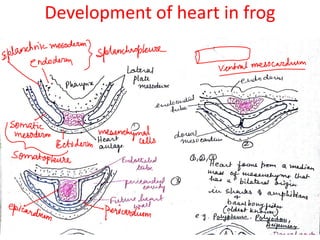 Development of heart in frog
Splanchnic mesoderm
Endoderm
Splanchnopleure
Pharynx
Lateral
Plate
mesoderm
Ventral mesocardium
endoderm
endocardial
tube
Somatic
mesoderm
Ectoderm
mesenchymal
cells
Heart
anlage
②
dorsal
mesocardium
Somatopleure
①,②,③
Heart forms from a median
mass of mesenchyme that
has a bilateral origin
Endothelial
tube
pericardial
cavity
③
Future heart
wall
epicardium
pericardium
in sharks & amphibians
&
(oldest known)
e.g. Polypterus, Polyodon,
Acipenser